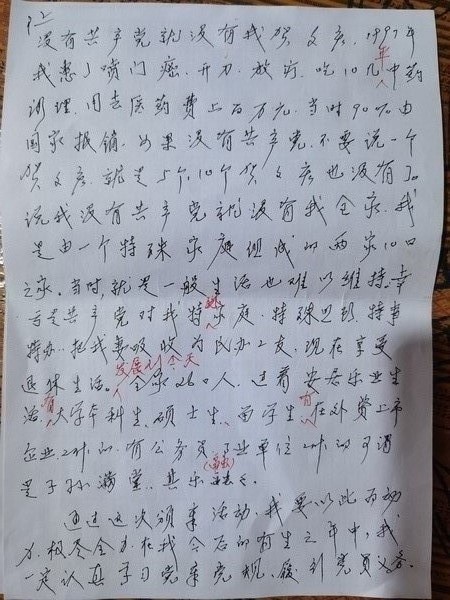 没有共产党就没有我贺文彦. 1997年
我患了喷门癌. 开刀. 放疗. 吃10几年中药
调理. 用去医药费上百万元. 当时90%由
国家报销. 如果没有共产党. 不要说一个
贺文彦. 就是5个.10个贺文彦也没有了.
说我没有共产党就没有我全家. 我
是由一个特殊家庭组成的两家10口
之家. 当时, 就是一般生活也难以维持. 幸
亏是共产党对我特殊家庭. 特殊照顾. 特事
特办. 把我妻吸收为民办工友. 现在享受
退休生活. 发展到今天全家26口人. 过着安居乐业生
活. 有大学本科生. 硕士生. 留学生. 有在外资上市
企业工作的. 有公务员事业单位工作的可谓
是子孙满堂. 其乐融融.
通过这次颁奖活动. 我要以此为动
力. 极尽全力. 在我今后的有生之年中, 我
一定认真学习党章党规. 履行党员义务.